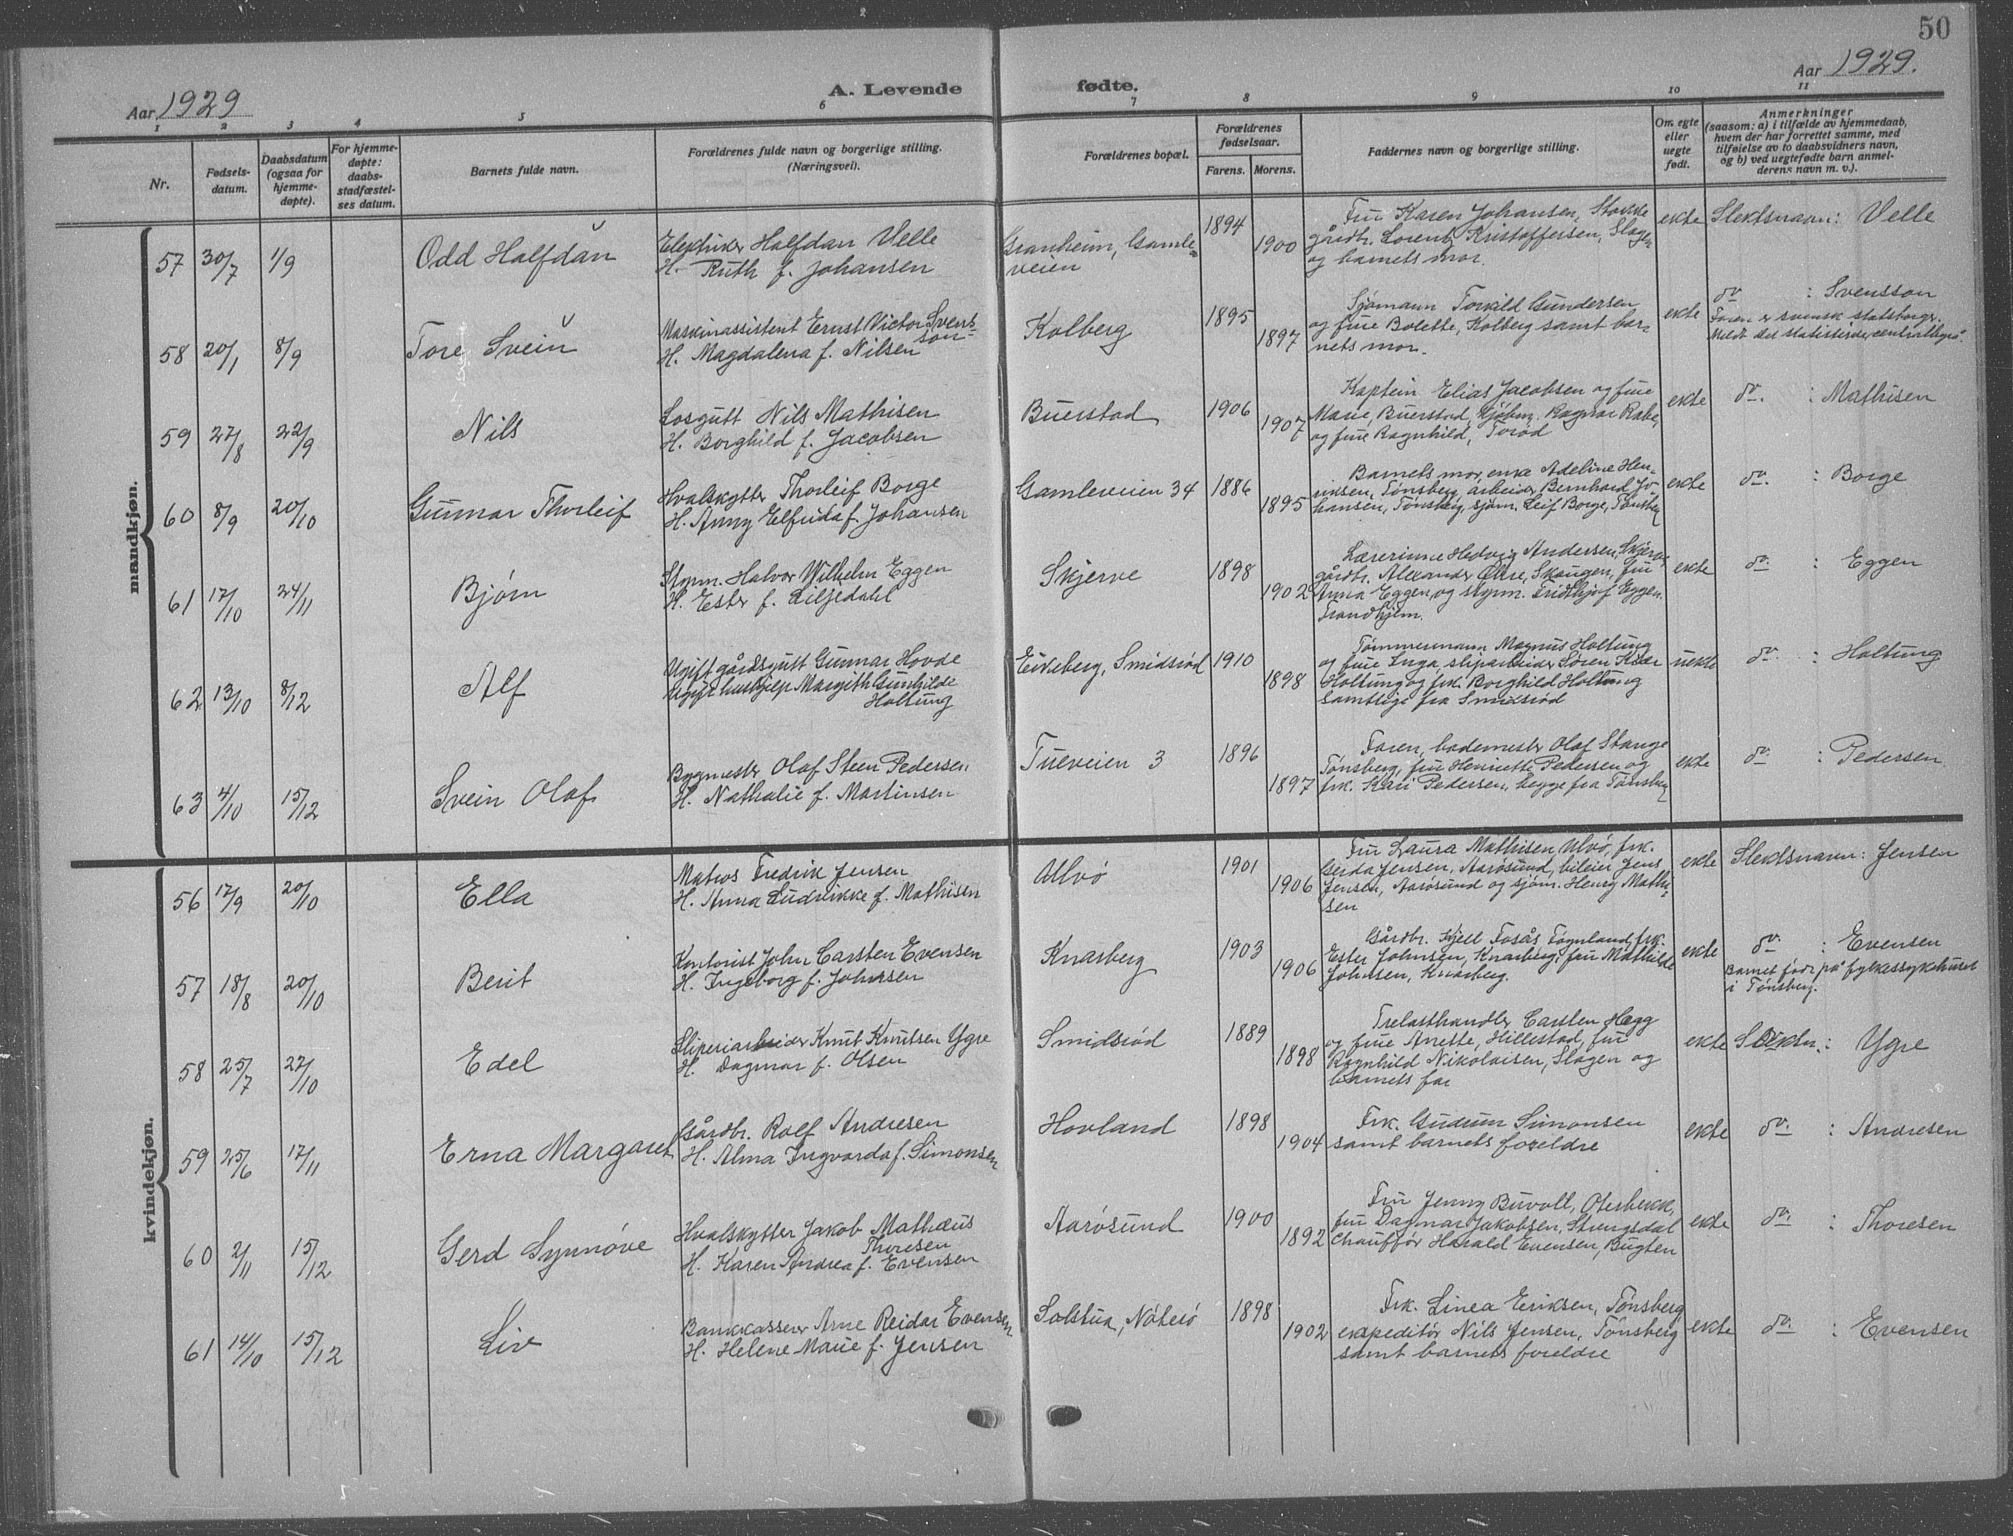 50
Aar 1929
A. Levende
fødte.
Aar 1929.
1 2 3 4 5 6 7 8 9 10 11
Nr.
Fødsels-
datum.
Daabsdatum
(ogsaa for
hjemme-
døpte).
For hjemme-
døpte:
daabs-
stadfæstel-
ses datum.
Barnets fulde navn.
Forældrenes fulde navn og borgerlige stilling.
(Næringsvei).
Forældrenes bopæl.
Forældrenes
fødselsaar.
Farens. Morens.
Faddernes navn og borgerlige stilling.
Om egte
eller
uegte
født.
Anmerkninger
(saasom: a) i tilfælde av hjemmedaab,
hvem der har forrettet samme, med
tilføielse av to daabsvidners navn,
og b) ved uegtefødte barn anmel-
derens navn m. v.).
mandkjøn.
57 30/7 1/9 Odd Halfdan
Elektriker Halfdan Velle
H. Ruth f. Johansen
Granheim, Gamle=
veien
1894 1900
Fru Karen Johansen,
gårdbr. Lorentz Kristoffersen, Slagen
og barnets mor.
ekte Slektsnavn: Velle
58 20/1 8/9 Tore Svein
Maskinassistent Ernst Victor Svens-
son
H. Magdalena f. Nilsen
Kolberg
1895 1897
Sjømann Torkild Gundersen
og frue Bolette, Kolberg samt bar-
nets mor.
ekte do : Svensson
Faren er svensk statsborgr.
Meldt det statistiske centralbyrå.
59 27/8 22/9 Nils
Losgutt Nils Mathisen
H. Borghild f. Jacobsen
Buerstad
1906 1907
Kaptein Elias Jacobsen og frue
Marie, Buerstad, kjøbm. Ragnar Rabe,
og frue Ragnhild, Torød
ekte do. : Mathisen
60 8/9 20/10 Gunnar Thorleif
Hvalskytter Thorleif Borge
H. Anny Elfrida f. Johansen
Gamleveien 34
1886 1895
Barnets mor, enke Adeline Hen-
riksen, Tønsberg, arbeider Bernhard Jo-
hansen, Tønsberg, sjøm. Leif Borge, Tønsberg
ekte do. : Borge
61 17/10 24/11 Bjørn
Styrm. Halvor Wilhelm Eggen
H. Ester f. Liljedahl
Skjerve
1898 1902
Lærerinne Hedvig Andersen, Skjerve,
gårdbr. Alexander Øhre, Skaugen, fru
Anna Eggen, og styrm. Fridthjof Eggen
Trondhjem.
ekte do. : Eggen
62 13/10 8/12 Alf
Ugift gårdsgutt Gunnar Hovde
Ugift hushjelp Margith Gunhilde
Holtung
Eikeberg, Smidsrød
1910 1898
Tømmermann Magnus Holtung
og frue Inga, sliparbeider Søren
Holtung og frk. Borghild Holtung
samtlige fra Smidsrød
uekte do. : Holtung
63 4/10 15/12 Svein Olaf
Byggmester Olaf Steen Pedersen
H. Nathalie f. Martinsen
Tueveien 3
1896 1897
Faren, bademester Olaf Stange
Tønsberg, fru Henriette Pedersen og
frk. Kari Pedersen, begge fra Tønsberg
ekte do. : Pedersen.
kvindekjøn.
56 17/9 20/10 Ella
Matros Fredrik Jensen
H. Anna Ludvikke f. Mathisen
Ulvø
1901 1906
Fru Laura Mathisen, Ulvø, frk.
Gerda Jensen, Aarøsund, bileier Jens
Jensen, Aarøsund og sjøm. Henry Mathi-
sen
ekte Slektsnavn: Jensen
57 18/8 20/10 Berit
Kontorist John Carsten Evensen
H. Ingeborg f. Johnsen
Knarberg
1903 1906
Gårdbr. Kjell Fosås, frk.
Ester Johnsen, Knarberg, fru Mathilde
Johnsen, Knarberg.
ekte do. : Evensen
Barnet født på fylkessykehuset
i Tønsberg.
58 25/7 27/10 Edel
Sliperiarbeider Knut Knutsen Ygre
H. Dagmar f. Olsen
Smidsrød
1889 1898
Trelasthandler Carsten Hegg
og frue Anette, Hillestad, fru
Ragnhild Nikolaisen, Slagen og
barnets far
ekte Slektsn.: Ygre
59 25/6 17/11 Erna Margaret
Gårdbr. Rolf Andresen
H. Alma Ingvarda f. Simonsen
Hovland
1898 1904
Frk. Gudrun Simonsen
samt barnets foreldre
ekte do. : Andresen
60 2/11 15/12 Gerd Synnøve
Hvalskytter Jakob Mathæus
Thoresen
H. Karen Andrea f. Evensen
Aarøsund
1900 1892
Fru Jenny Buvoll, Oterbekk,
fru Dagmar Jakobsen, Strengsdal
chauffør Harald Evensen, Bugten
ekte do. : Thoresen
61 14/10 15/12 Liv
Bankkasserer Arne Reidar Evensen
H. Helene Marie f. Jensen
Solstua, Nøterø
1898 1902
Frk. Linea Eriksen, Tønsberg
ekspeditør Nils Jensen, Tønsberg
samt barnets foreldre
ekte do. : Evensen